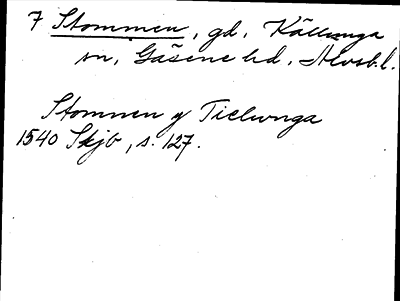 7 Stommen, gd, Källunga
sn, Gäsene hd, Älvsb.l.
Stommen y Tielunga
1540 Skjb, s. 127.